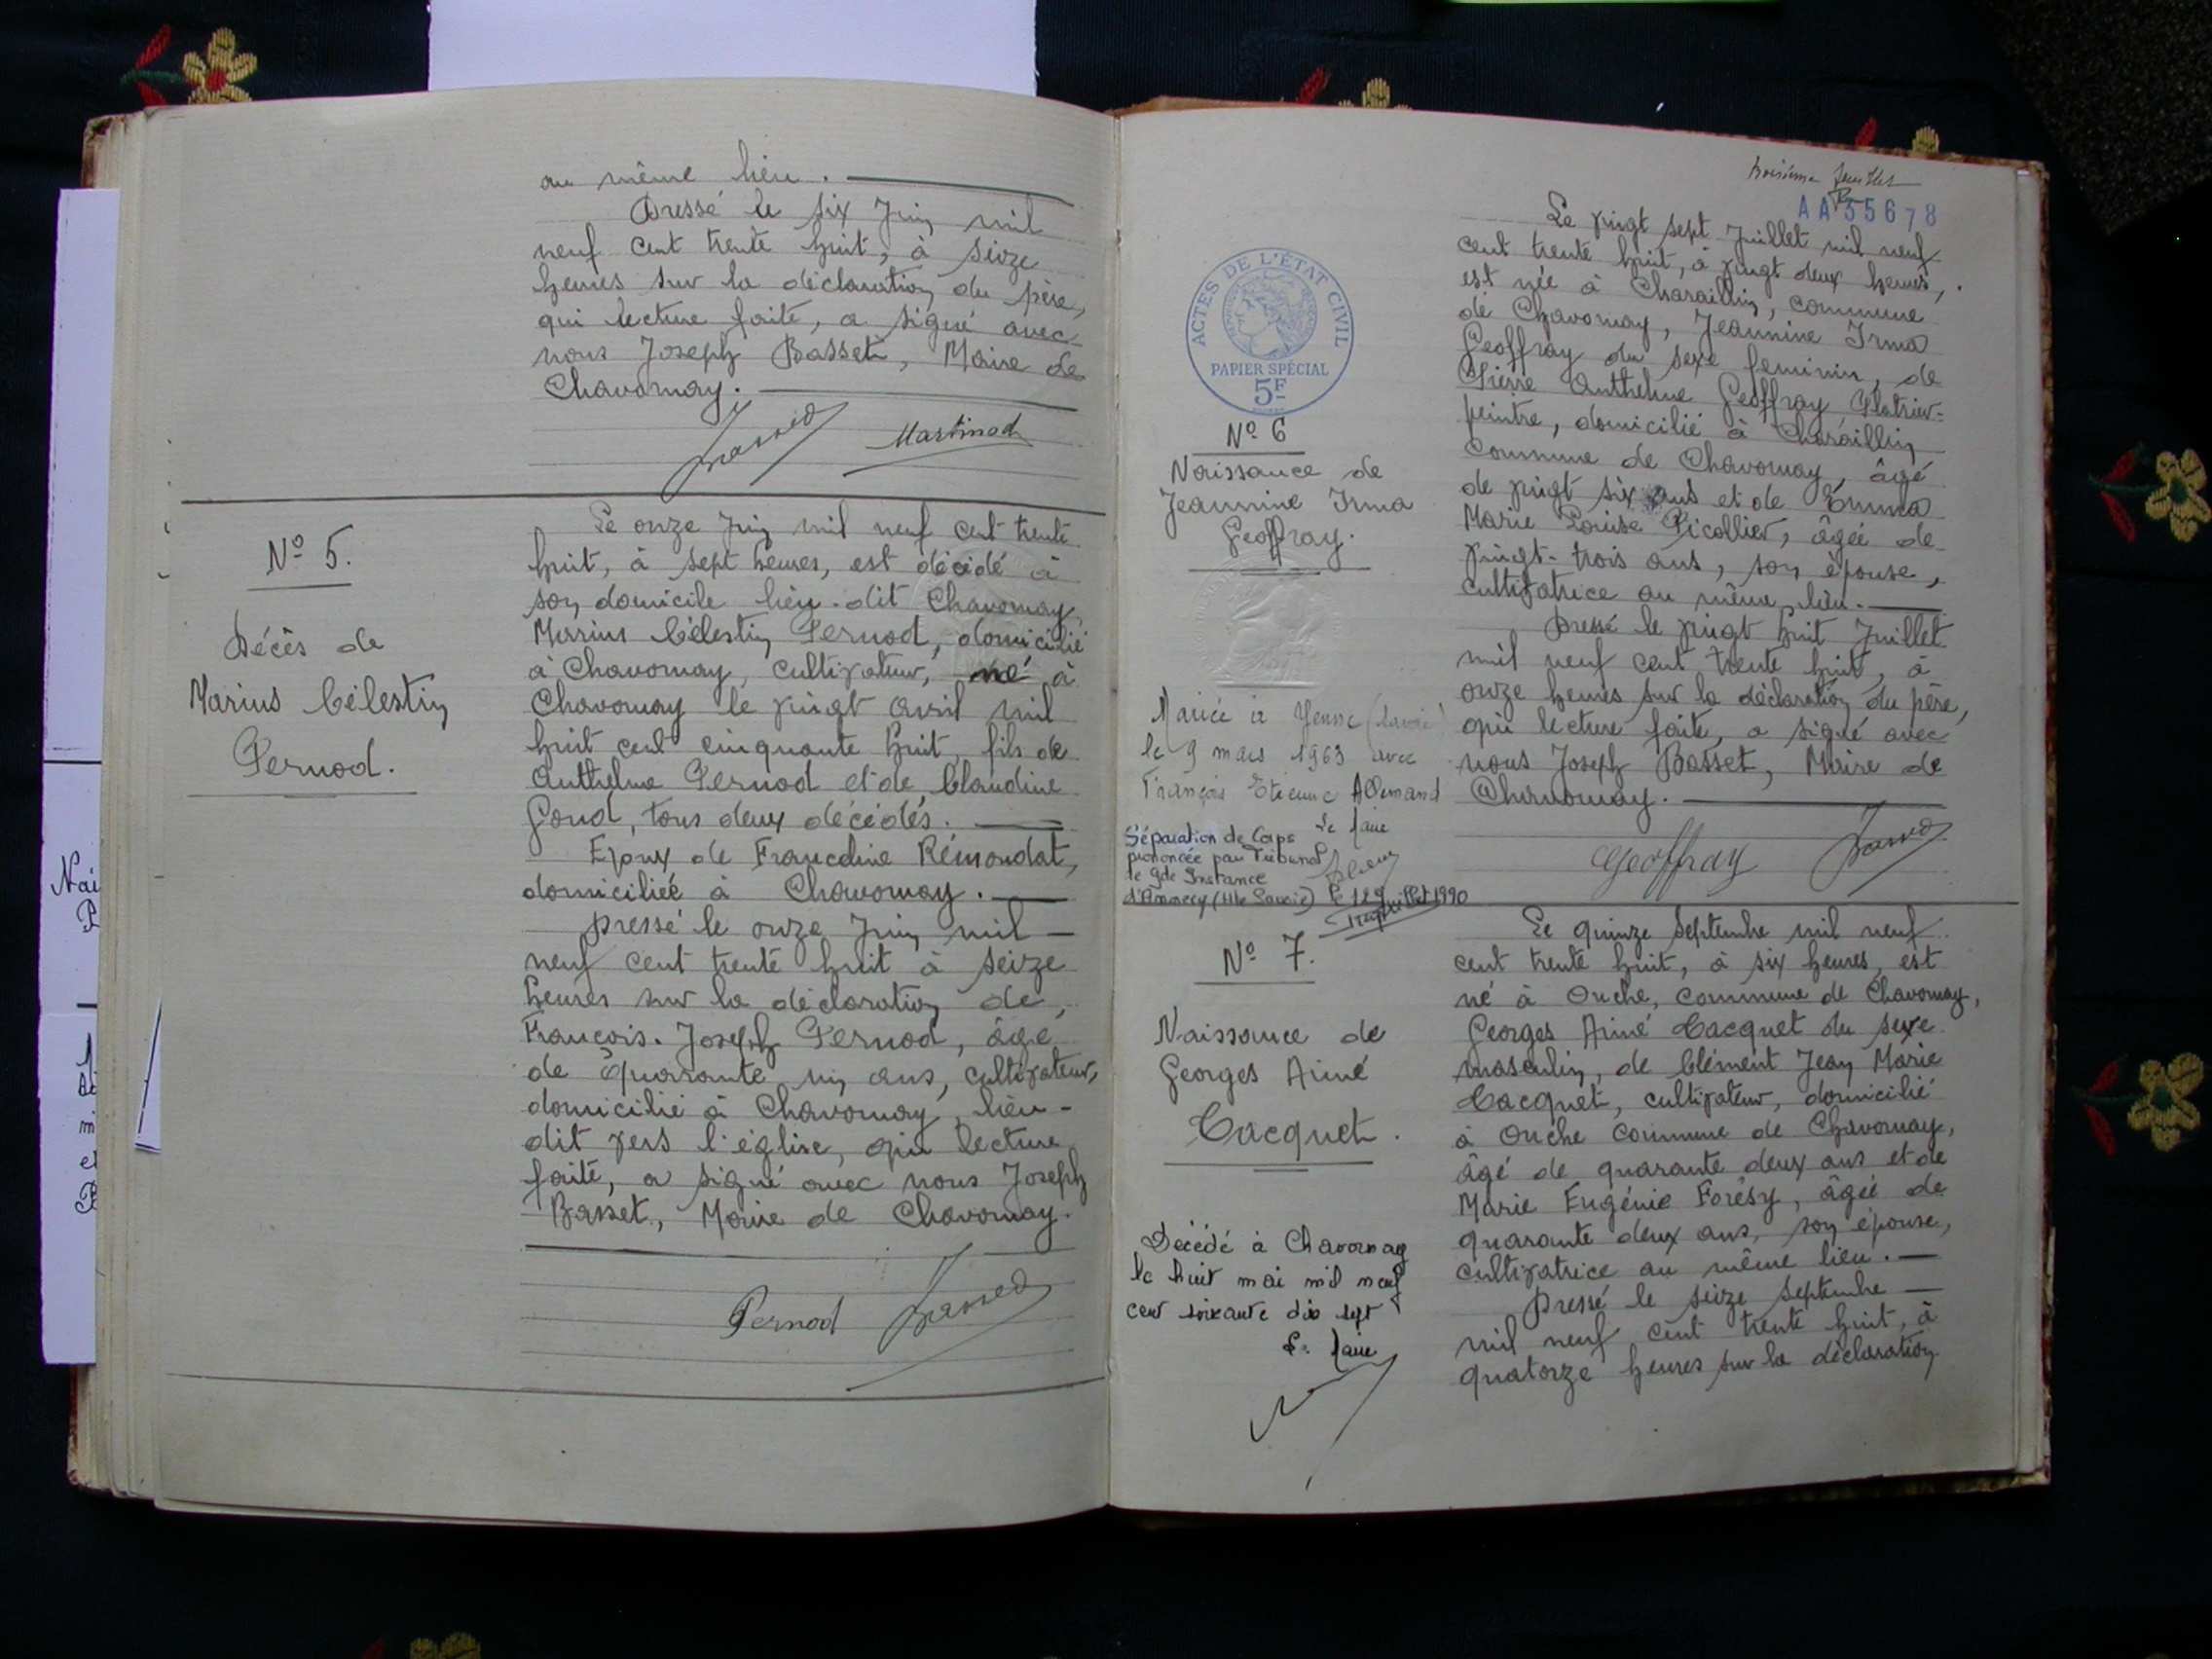 au même lieu.
Dressé le six Juin mil
neuf cent trente huit, à seize
heures sur la déclaration du père,
qui lecture faite, a signé avec
nous Joseph Basset, Maire de
Chavornay.
Basset Martinod
No 5.
Décès de
Marius Célestin
Pernod.
Le onze Juin mil neuf cent trente
huit, à sept heures, est décédé à
son domicile lieu-dit Chavornay,
Marius Célestin Pernod, domicilié
à Chavornay, cultivateur, né à
Chavornay le vingt avril mil
huit cent cinquante huit, fils de
Anthelme Pernod et de Claudine
Goud, tous deux décédés.
Epoux de Francéline Rémondat,
domiciliée à Chavornay.
Dressé le onze Juin mil
neuf cent trente huit à seize
heures sur la déclaration de,
François-Joseph Pernod, âgé
de quarante un ans, cultivateur,
domicilié à Chavornay, lieu-
dit vers l'église, qui lecture
faite, a signé avec nous Joseph
Basset, Maire de Chavornay.
Pernod Basset
troisième feuillet
AA 35678
ACTES DE L'ÉTAT CIVIL
PAPIER SPÉCIAL
5F
No 6
Naissance de
Jeannine Irma
Geoffray.
Mariée à Yenne (Savoie)
le 9 mars 1963 avec
François Etienne Allemand
Le Maire
Séparation de Corps
prononcée par Tribunal
de Gde Instance
d'Annecy (Hte Savoie) le 12 juillet 1990
Le vingt sept Juillet mil neuf
cent trente huit, à vingt deux heures,
est née à Charaillin, commune
de Chavornay, Jeannine Irma
Geoffray du sexe feminin, de
Pierre Anthelme Geoffray Platrier-
peintre, domicilié à Charaillin
commune de Chavornay, âgé
de vingt six ans et de Emma
Marie Louise Picollier, âgée de
vingt-trois ans, son épouse,
cultivatrice au même lieu.
Dressé le vingt huit Juillet
mil neuf cent trente huit, à
onze heures sur la déclaration du père,
qui lecture faite, a signé avec
nous Joseph Basset, Maire de
Chavornay.
Geoffray Basset
No 7.
Naissance de
Georges Aimé
Cacquet.
Décédé à Chavornay
le huit mai mil neuf
cent soixante dix sept
Le Maire
Le quinze Septembre mil neuf
cent trente huit, à six heures, est
né à Ouche, commune de Chavornay,
Georges Aimé Cacquet du sexe
masculin, de Clément Jean Marie
Cacquet, cultivateur, domicilié
à Ouche commune de Chavornay,
âgé de quarante deux ans et de
Marie Eugénie Forésy, âgée de
quarante deux ans, son épouse,
cultivatrice au même lieu.
Dressé le seize Septembre
mil neuf cent trente huit, à
quatorze heures sur la déclaration